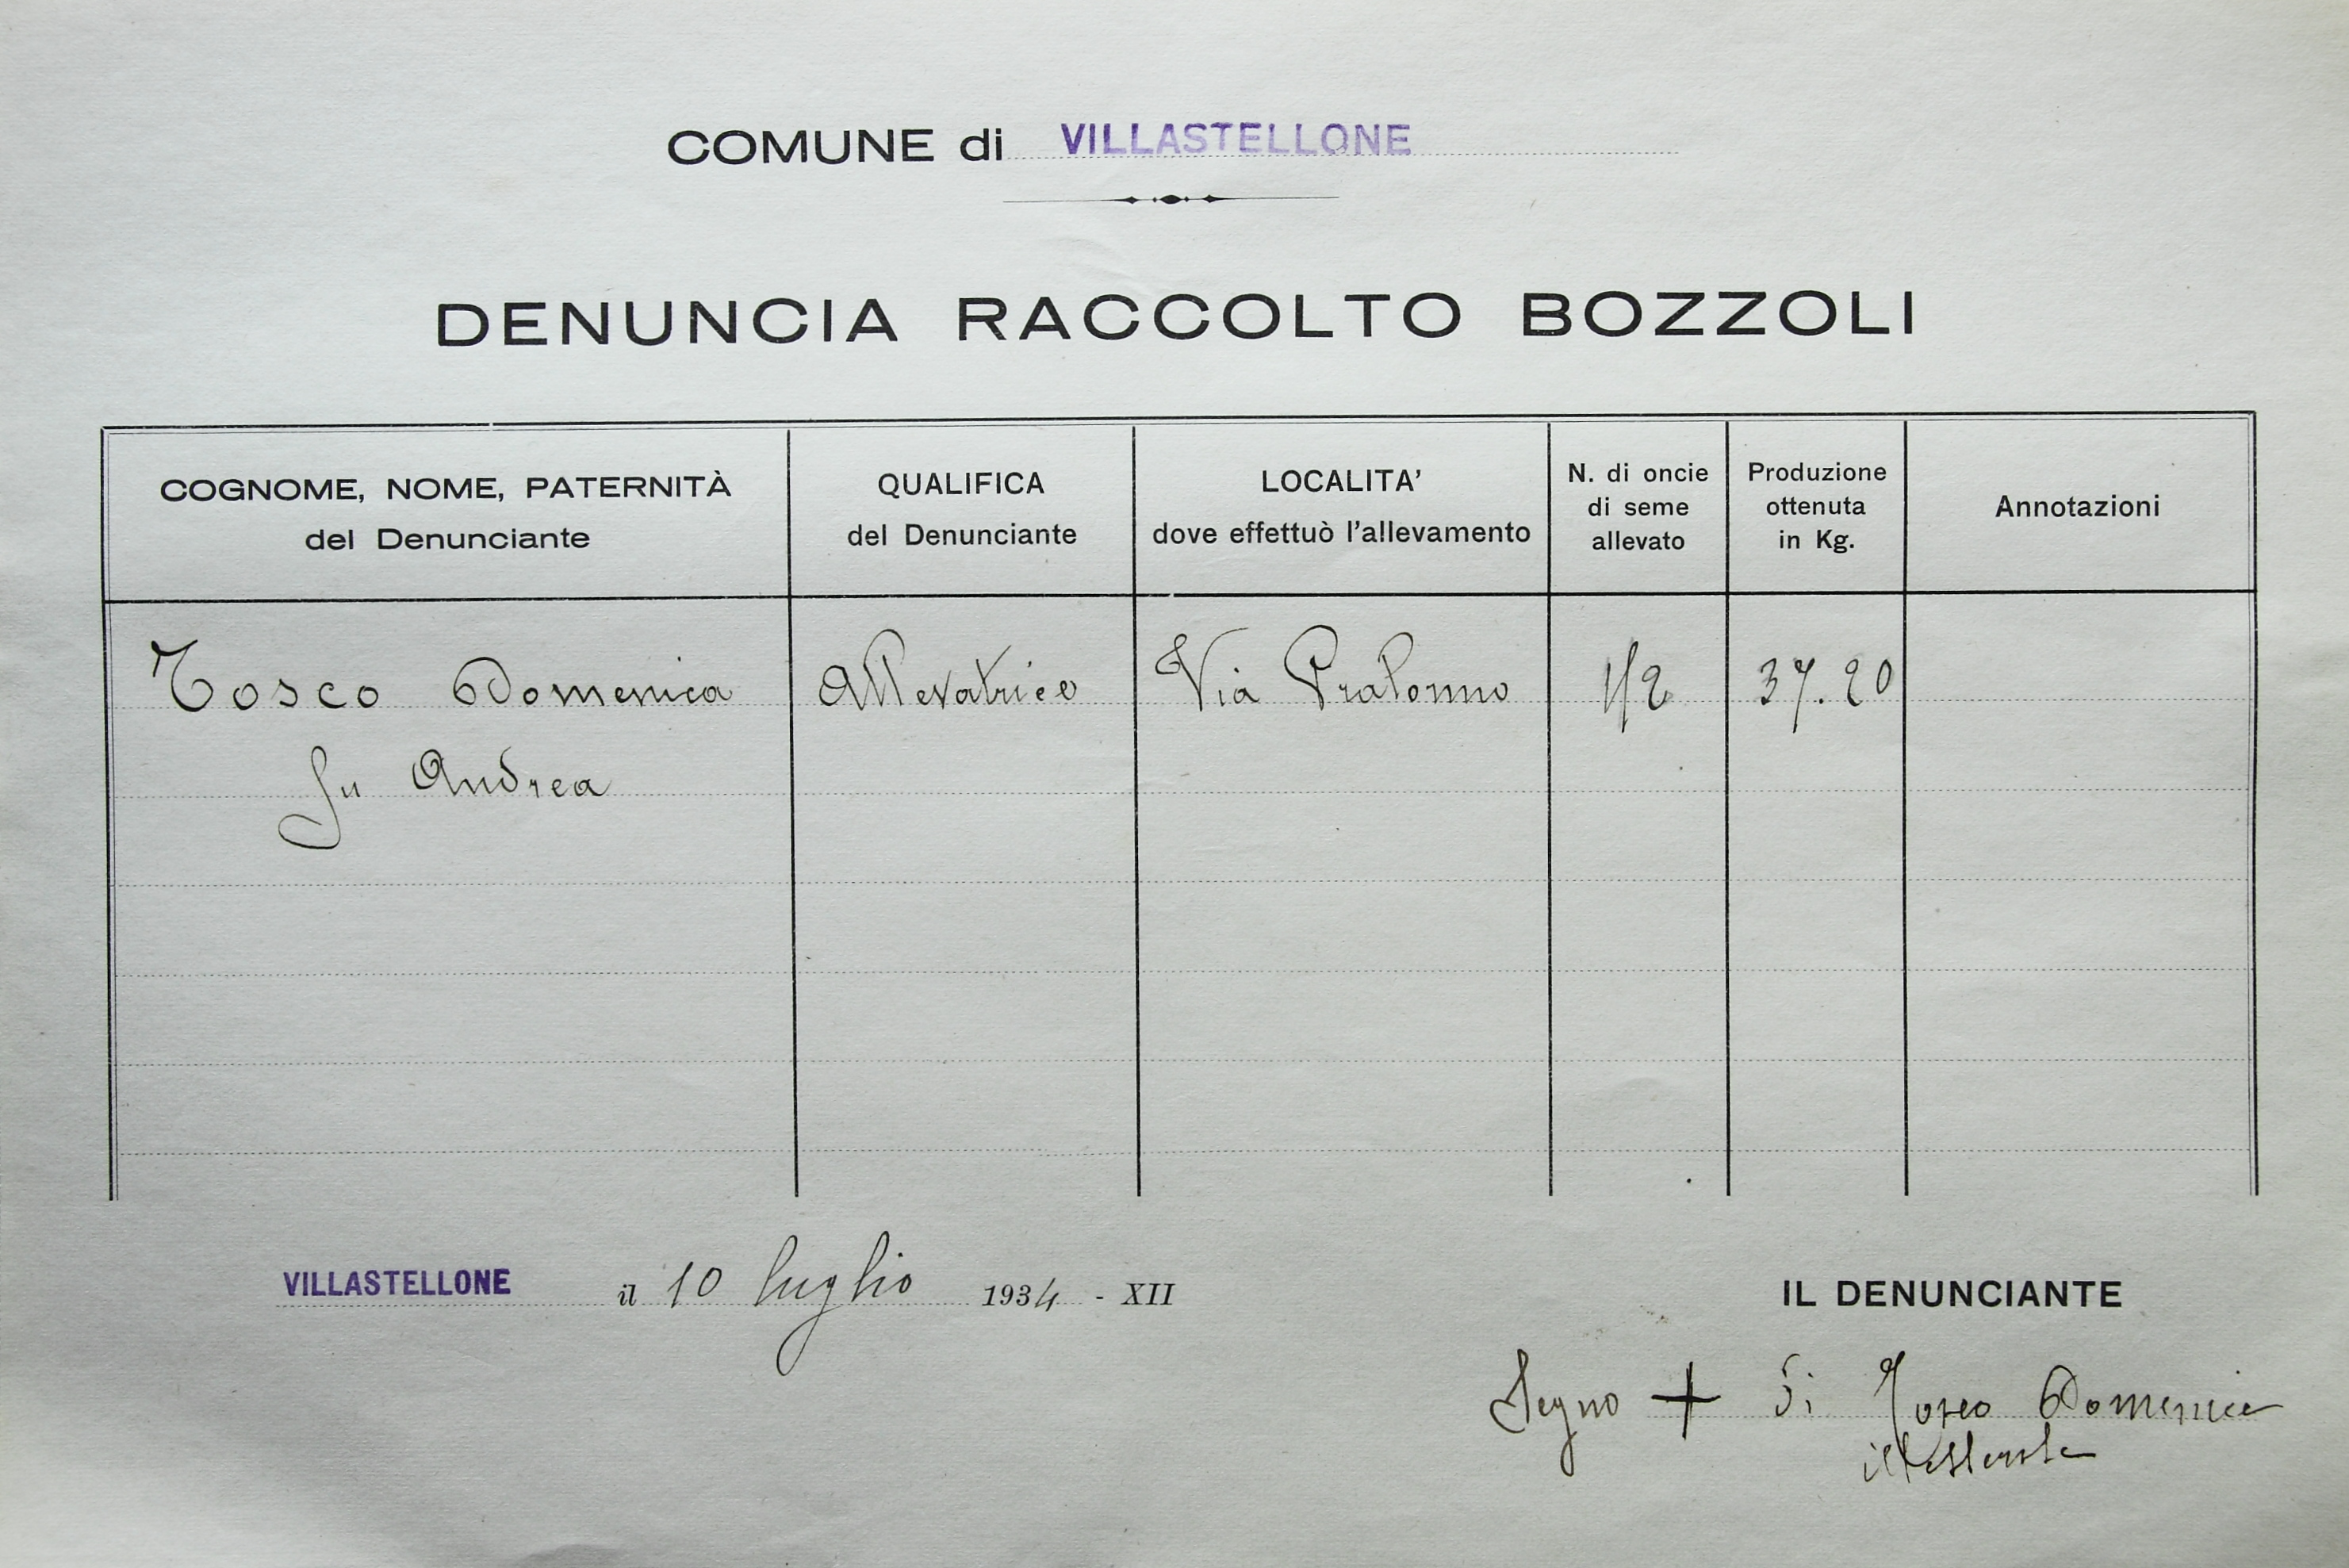 COMUNE di VILLASTELLONE
DENUNCIA RACCOLTO BOZZOLI
COGNOME, NOME, PATERNITÀ
del Denunciante
QUALIFICA
del Denunciante
LOCALITA'
dove effettuò l'allevamento
N. di oncie
di seme
allevato
Produzione
ottenuta
in Kg.
Annotazioni
Tosco Domenica Allevatrice Via Pralormo 1/2 37.20
fu Andrea
VILLASTELLONE il 10 luglio 1934 - XII
IL DENUNCIANTE
Segno + di Tosco Domenica